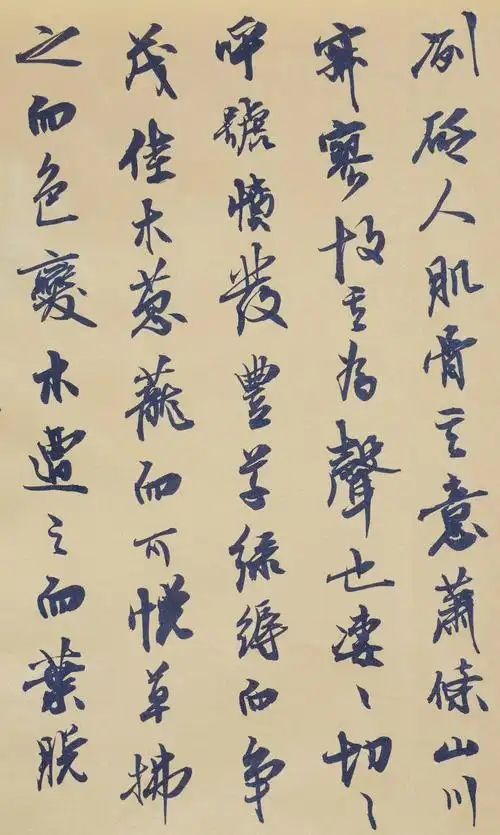 冽砭人肌骨其意蕭條山川
寂寥故其為聲也凄〻切〻
呼號憤發豐草綠縟而爭
茂佳木蔥蘢而可悅草拂
之而色變木遭之而葉脫